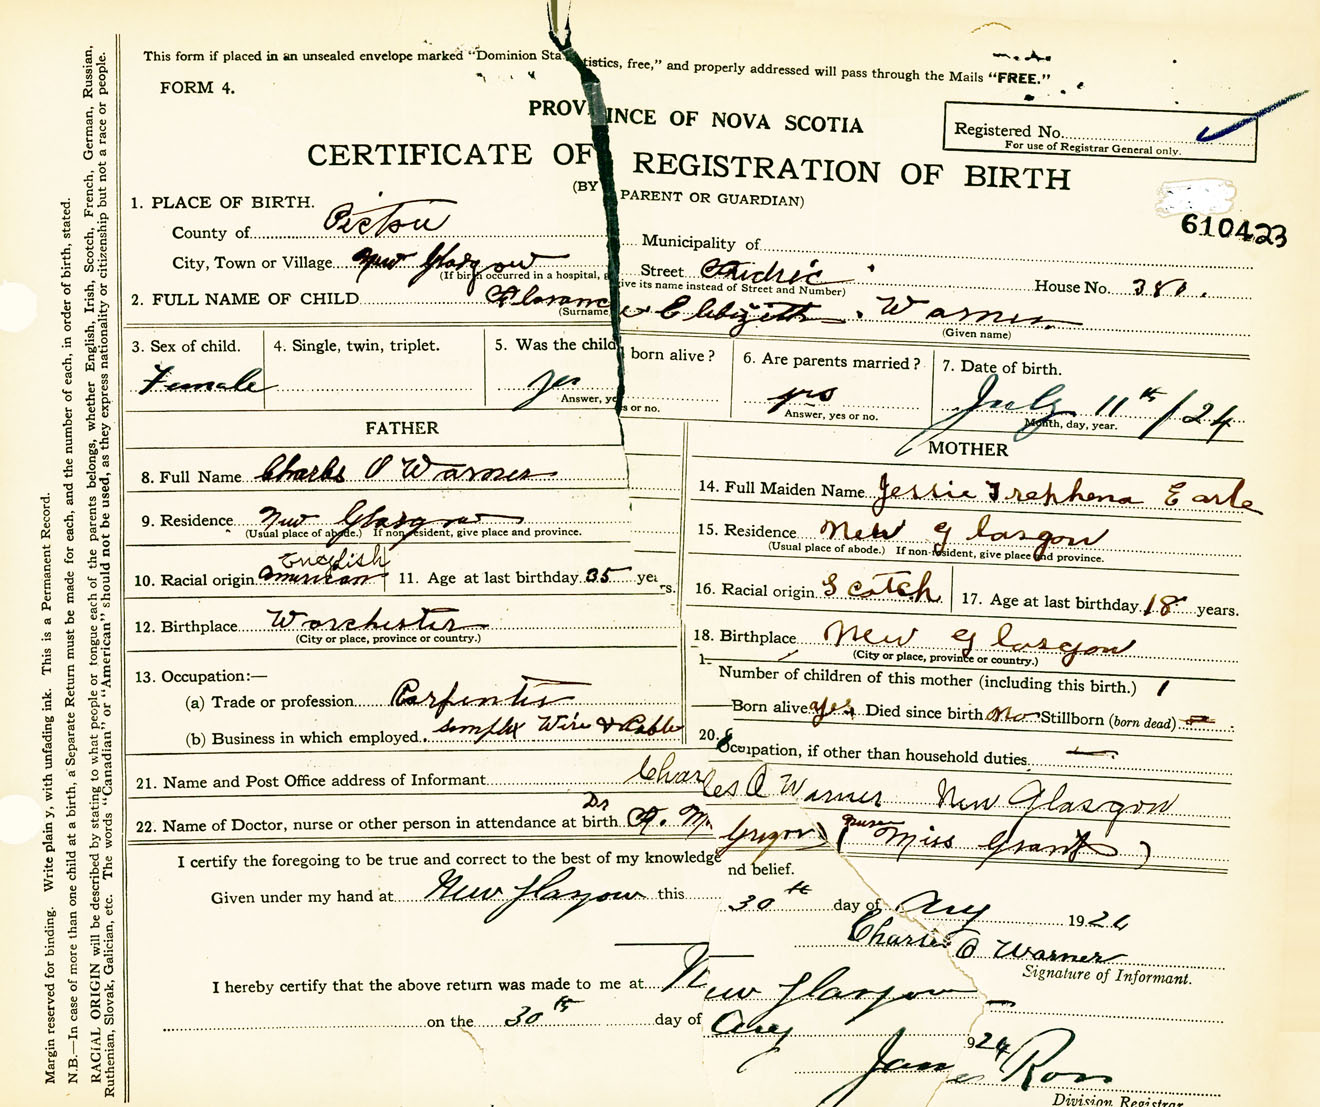 This form if placed in an unsealed envelope marked "Dominion Statistics, free," and properly addressed will pass through the Mails "FREE."
FORM 4.
PROVINCE OF NOVA SCOTIA
Registered No.
For use of Registrar General only.
CERTIFICATE OF REGISTRATION OF BIRTH
(BY PARENT OR GUARDIAN)
610423
1. PLACE OF BIRTH.
County of Pictou Municipality of
City, Town or Village New Glasgow Street House No. 380.
(If birth occurred in a hospital, give its name instead of Street and Number)
2. FULL NAME OF CHILD Florance Elebizeth Warner
(Surname) (Given name)
3. Sex of child. 4. Single, twin, triplet. 5. Was the child born alive? 6. Are parents married? 7. Date of birth.
Female yes yes July 11th/24
Answer, yes or no. Answer, yes or no. Month, day, year.
FATHER
8. Full Name Charles O Warner
9. Residence New Glasgow
(Usual place of abode.) If non-resident, give place and province.
English
10. Racial origin American 11. Age at last birthday 35 years.
12. Birthplace Worchester
(City or place, province or country.)
13. Occupation:—
(a) Trade or profession Carpenter
(b) Business in which employed. Simplex Wire & Cable
MOTHER
14. Full Maiden Name Jessie Trephena Earle
15. Residence New Glasgow
(Usual place of abode.) If non-resident, give place and province.
16. Racial origin Scotch 17. Age at last birthday 18 years.
18. Birthplace New Glasgow
(City or place, province or country.)
1. Number of children of this mother (including this birth.) 1
Born alive yes Died since birth No Stillborn (born dead)
20. Occupation, if other than household duties —
21. Name and Post Office address of Informant Charles O Warner New Glasgow
22. Name of Doctor, nurse or other person in attendance at birth. Dr Gregor (nurse Miss Grant)
I certify the foregoing to be true and correct to the best of my knowledge and belief.
Given under my hand at New Glasgow this 30th day of Aug 1924
Charles O Warner
Signature of Informant.
I hereby certify that the above return was made to me at New Glasgow
on the 30th day of Aug 1924
James Ross
Division Registrar
Margin reserved for binding. Write plainly, with unfading ink. This is a Permanent Record.
N.B.—In case of more than one child at a birth, a Separate Return must be made for each, and the number of each, in order of birth, stated.
RACIAL ORIGIN will be described by stating to what people or tongue each of the parents belongs, whether English, Irish, Scotch, French, German, Russian,
Ruthenian, Slovak, Galician, etc. The words "Canadian" or "American" should not be used, as they express nationality or citizenship but not a race or people.